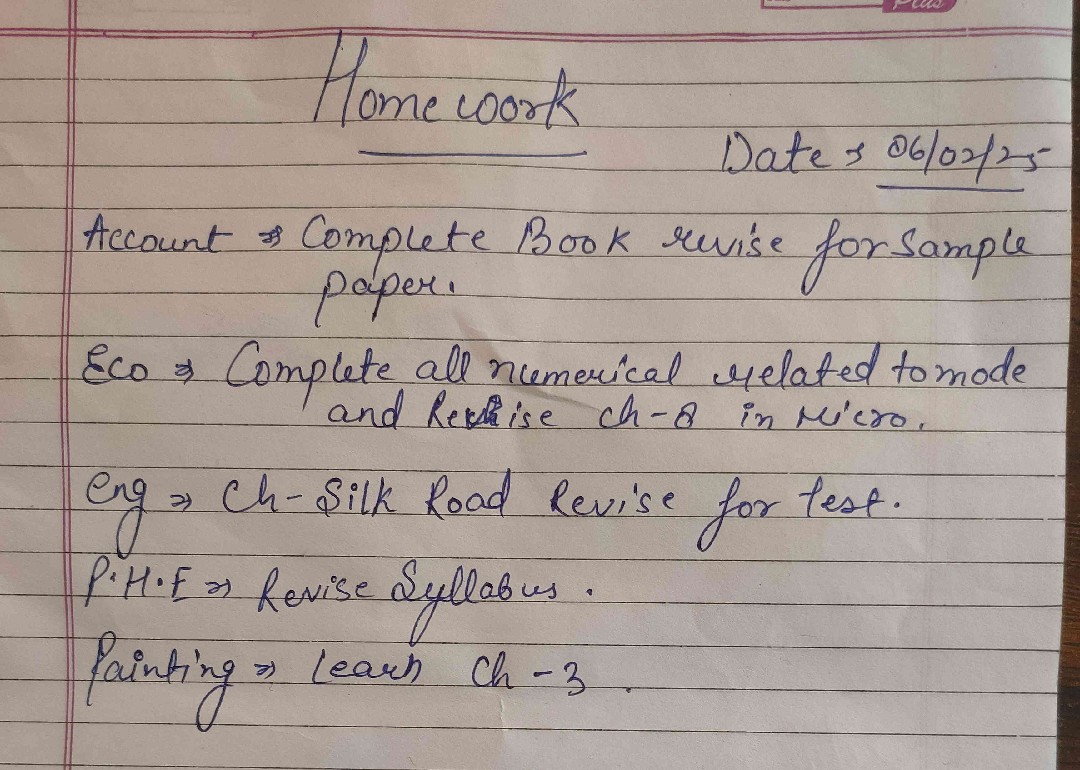 Plus
Homework
Date → 06/02/25
Account ⇒ Complete Book revise for Sample
paper.
Eco ⇒ Complete all numerical related to mode
and Revise ch-8 in Micro.
Eng ⇒ Ch- Silk Road Revise for test.
P.H.E ⇒ Revise Syllabus.
Painting ⇒ Learn Ch-3.